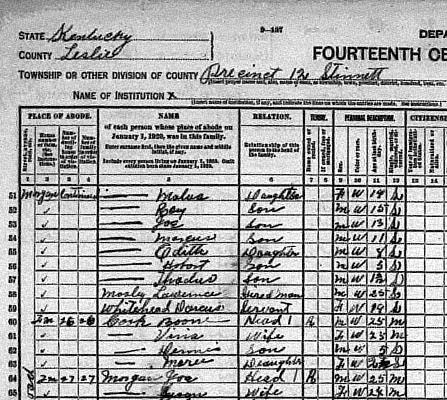 9-137
STATE Kentucky
DEPA
COUNTY Leslie
FOURTEENTH CE
TOWNSHIP OR OTHER DIVISION OF COUNTY Precinct 12 Stinnett
NAME OF INSTITUTION X
PLACE OF ABODE. NAME RELATION. TENURE. PERSONAL DESCRIPTION. CITIZENS
of each person whose place of abode on
January 1, 1920, was in this family.
Enter surname first, then the given name and middle
initial, if any.
Include every person living on January 1, 1920. Omit
children born since January 1, 1920.
Relationship of this
person to the head of
the family.
1 2 3 4 5 6 7 8 9 10 11 12 13 14
51 Morgan Continued — Daughter F W 19 S
52 — Ray Son M W 15 S
53 — Joe Son M W 13 S
54 — Marcus Son M W 11 S
55 — Edith Daughter F W 8 S
56 — Hobart Son M W 5 S
57 — Son M W S
58 Mosly Lawrence Hired man M W 25 S
59 Whitehead Dorcus Servant F W 19 S
60 Fm 26 26 Boone Head 1 R M W 25 M
61 — Wife F W 23 M
62 — Dennis Son M W 5 S
63 — Daughter F W S
64 Fm 27 27 Morgan Joe Head 1 R M W 25 M
65 — Susan Wife F W 24 M